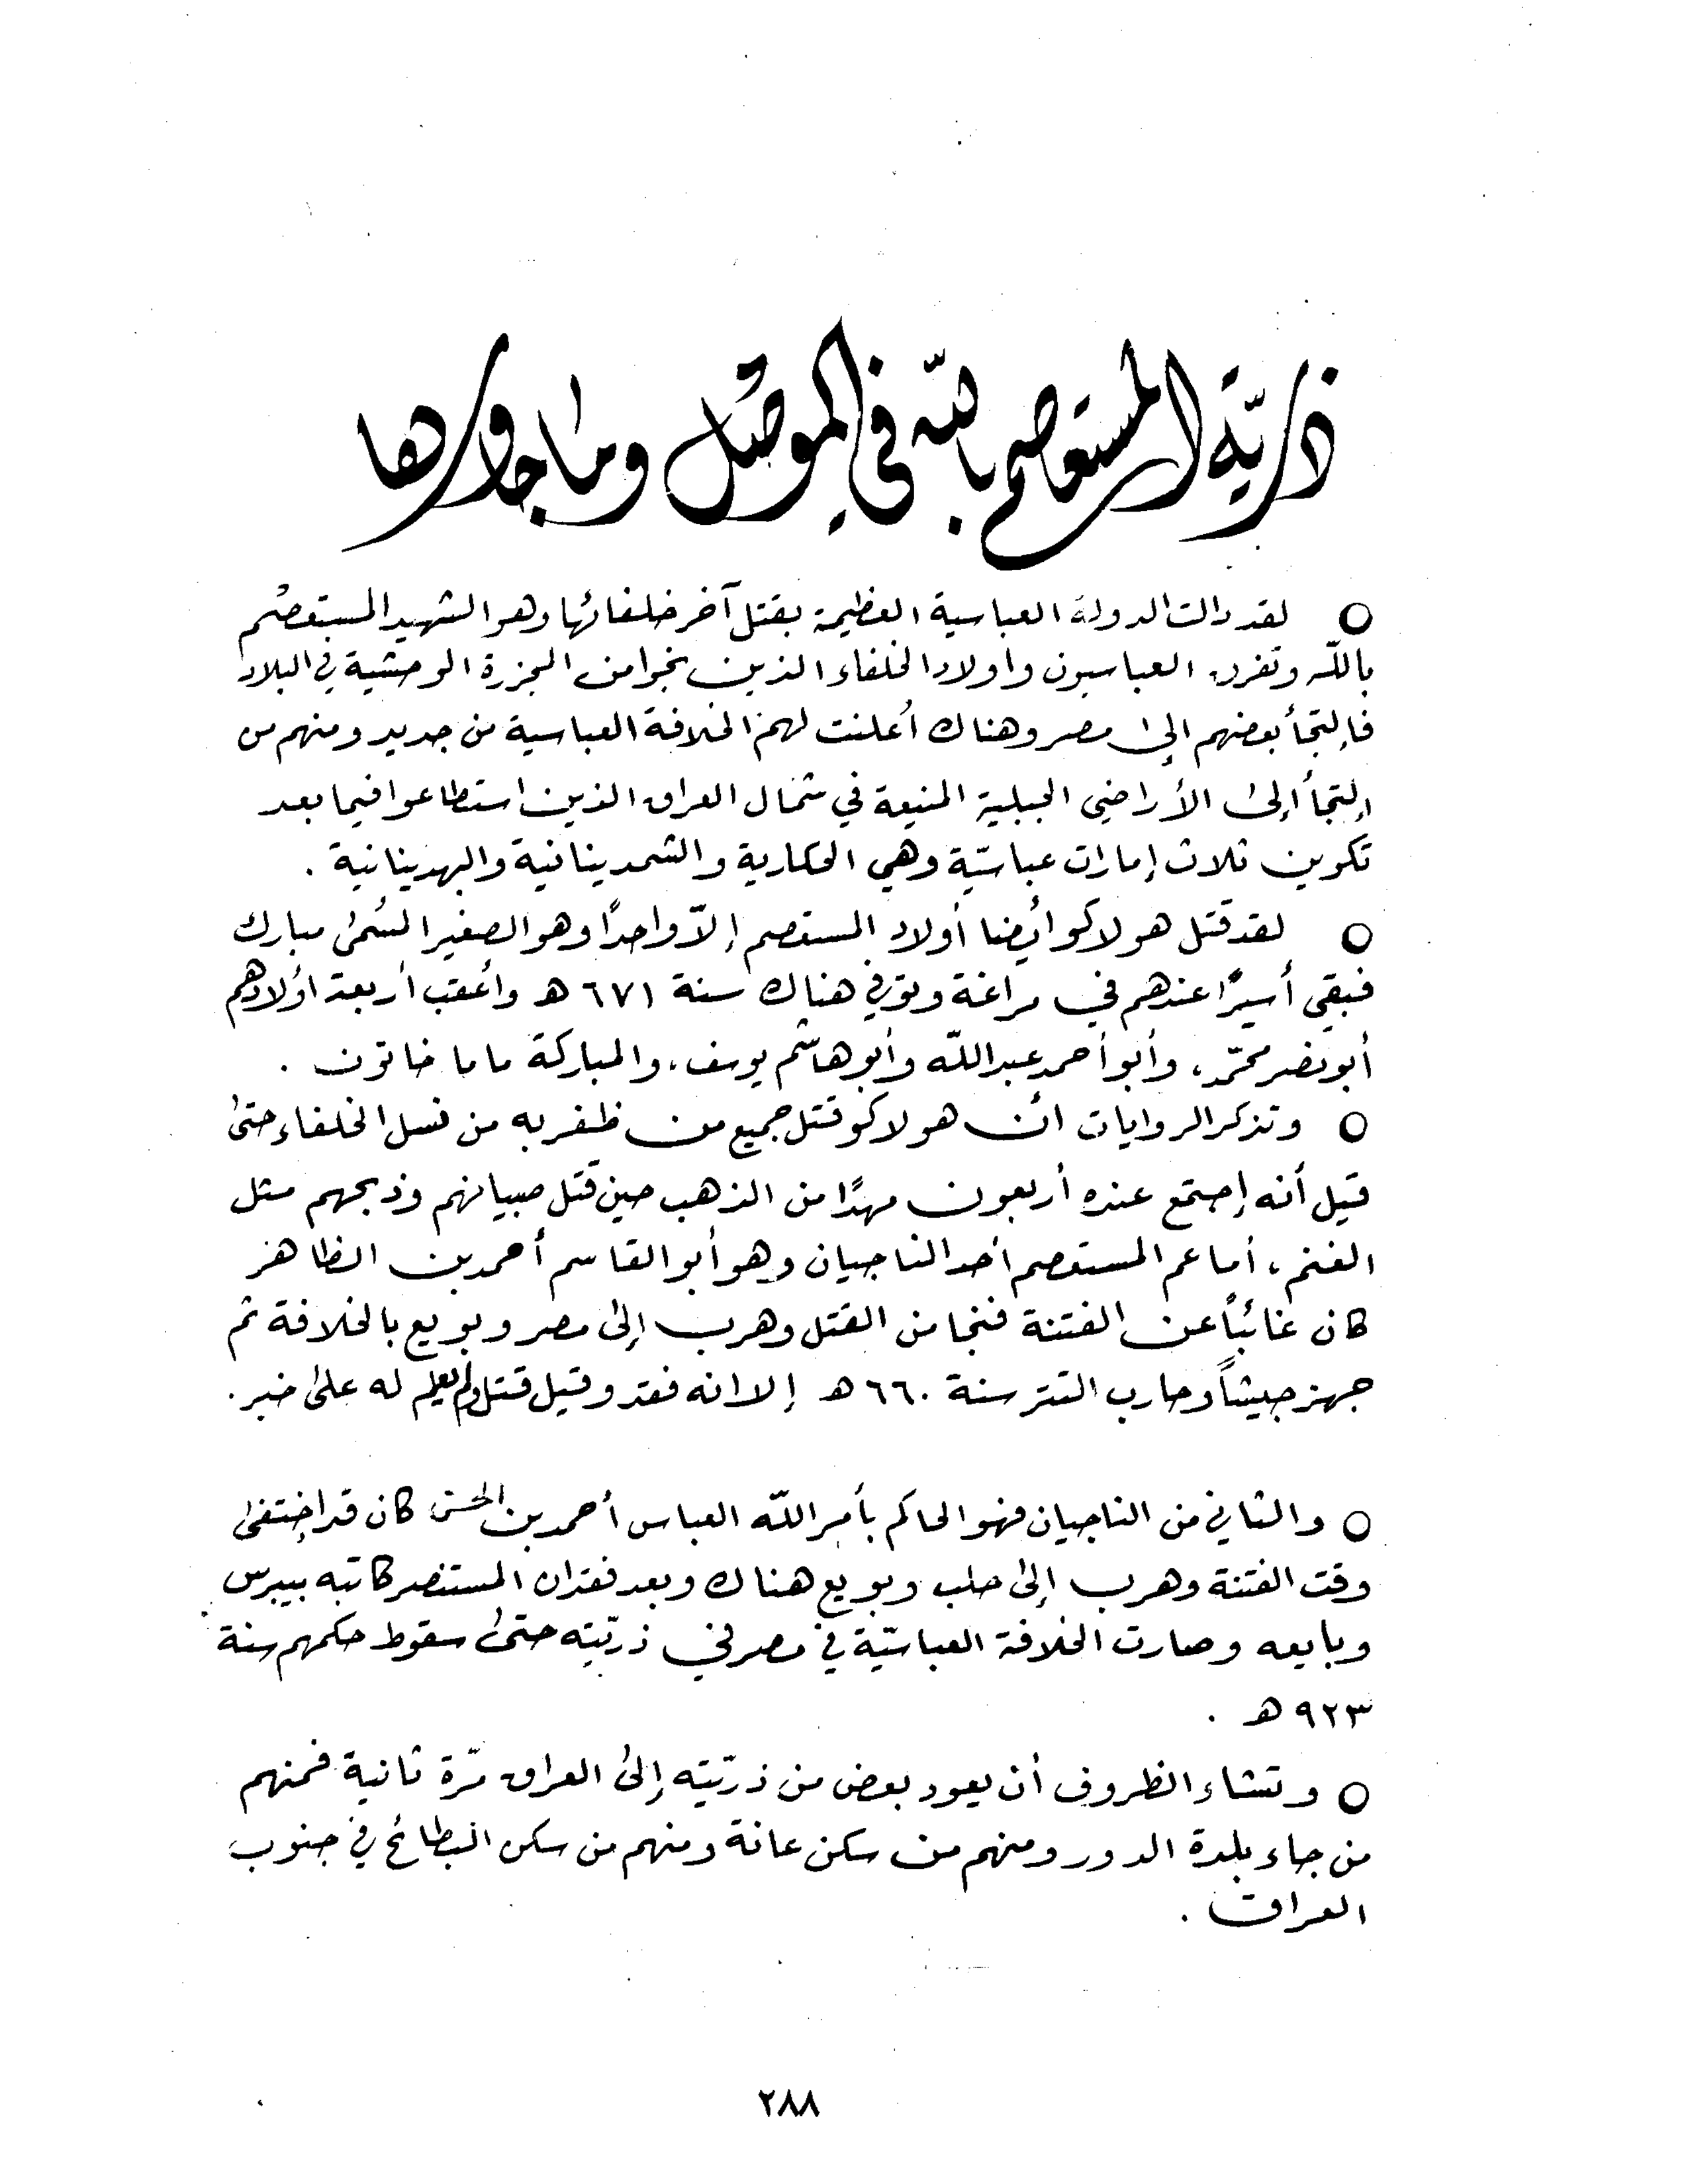 ذريّة المستعصم بالله في الموصل وما جاورها
○ لقد دالت الدولة العباسية العظيمة بقتل آخر خلفائها وهو الشهيد المستعصم
بالله وتفرق العباسيون واولاد الخلفاء الذين نجوا من المجزرة الوحشية في البلاد
فإلتجأ بعضهم إلى مصر وهناك أعلنت لهم الخلافة العباسية من جديد ومنهم من
إلتجأ إلى الأراضي الجبلية المنيعة في شمال العراق الذين استطاعوا فيما بعد
تكوين ثلاث إمارات عباسيّة وهي الحكارية والشمدينانية والبهدينانية .
○ لقد قتل هولاكو أيضا أولاد المستعصم إلاّ واحدًا وهو الصغير المسُمى مبارك
فبقي أسيرًا عندهم في مراغة وتوفي هناك سنة ٦٧١ هـ وأعقب أربعة أولاد هم
أبو نصر محمّد، وأبو أحمد عبد اللّه وأبو هاشم يوسف، والمباركة ماما خاتون .
○ وتذكر الروايات أن هولاكو قتل جميع من ظفر به من نسل الخلفاء حتى
قيل أنه إجتمع عنده أربعون مهدًا من الذهب حين قتل صبيانهم وذبحهم مثل
الغنم، أما عم المستعصم أحد الناجيان وهو أبو القاسم أحمد بن الظاهر
كان غائبًا عن الفتنة فنجا من القتل وهرب إلى مصر وبويع بالخلافة ثم
جهز جيشاً وحارب التتر سنة ٦٦٠ هـ إلا انه فقد وقيل قتل ولم يعلم له على خبر .
○ والثاني من الناجيان فهو الحاكم بأمر اللّه العباس أحمد بن الحسن كان قد إختفى
وقت الفتنة وهرب إلى حلب وبويع هناك وبعد فقدان المستنصر كاتبه بيبرس
وبايعه وصارت الخلافة العباسيّة في مصر في ذريّته حتى سقوط حكمهم سنة
٩٢٣ هـ .
○ وتشاء الظروف أن يعود بعض من ذريّته إلى العراق مّرة ثانية فمنهم
من جاء بلدة الدور ومنهم من سكن عانة ومنهم من سكن البطائح في جنوب
العراق .
٢٨٨